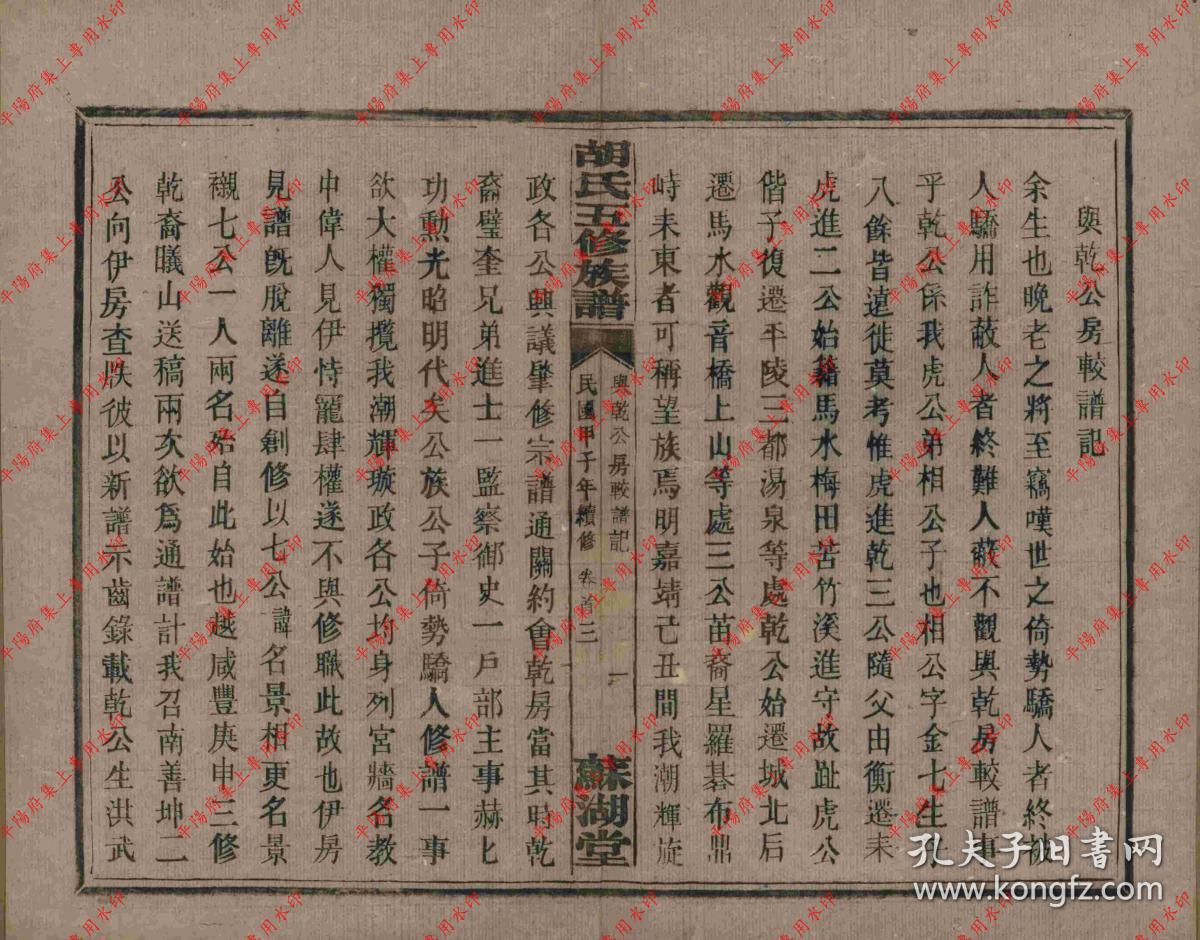 與乾公房較譜記
余生也晚老之將至竊嘆世之倚勢驕人者終被
人驕用詐蔽人者終難人蔽不觀與乾房較譜事
乎乾公係我虎公弟相公子也相公字金七生
八餘皆遠徙莫考惟虎進乾三公隨父由衡遷耒
虎進二公始籍馬水梅田苦竹溪進守故趾虎公
偕子復遷平陵三都湯泉等處乾公始遷城北后
遷馬水觀音橋上山等處三公苗裔星羅碁布鼎
峙耒東者可稱望族焉明嘉靖己丑間我潮輝旋
胡氏五修族譜
與乾公房較譜記 一
民國甲子年續修 卷首三
蘇湖堂
政各公興議肇修宗譜通關約會乾房當其時乾
裔璧奎兄弟進士一監察御史一戶部主事赫匕
功勳光昭明代矣公族公子倚勢驕人修譜一事
欲大權獨攬我潮輝璇政各公均身列宮牆名教
中偉人見伊恃寵肆權遂不與修職此故也伊房
見譜旣脫離遂自創修以七公諱名景相更名景
襯七公一人兩名始自此始也越咸豐庚申三修
乾裔曦山送稿兩次欲爲通譜計我召南善坤二
公向伊房查跌彼以新譜示齒錄載乾公生洪武
孔夫子旧书网
www.kongfz.com
平陽府集上專用水印